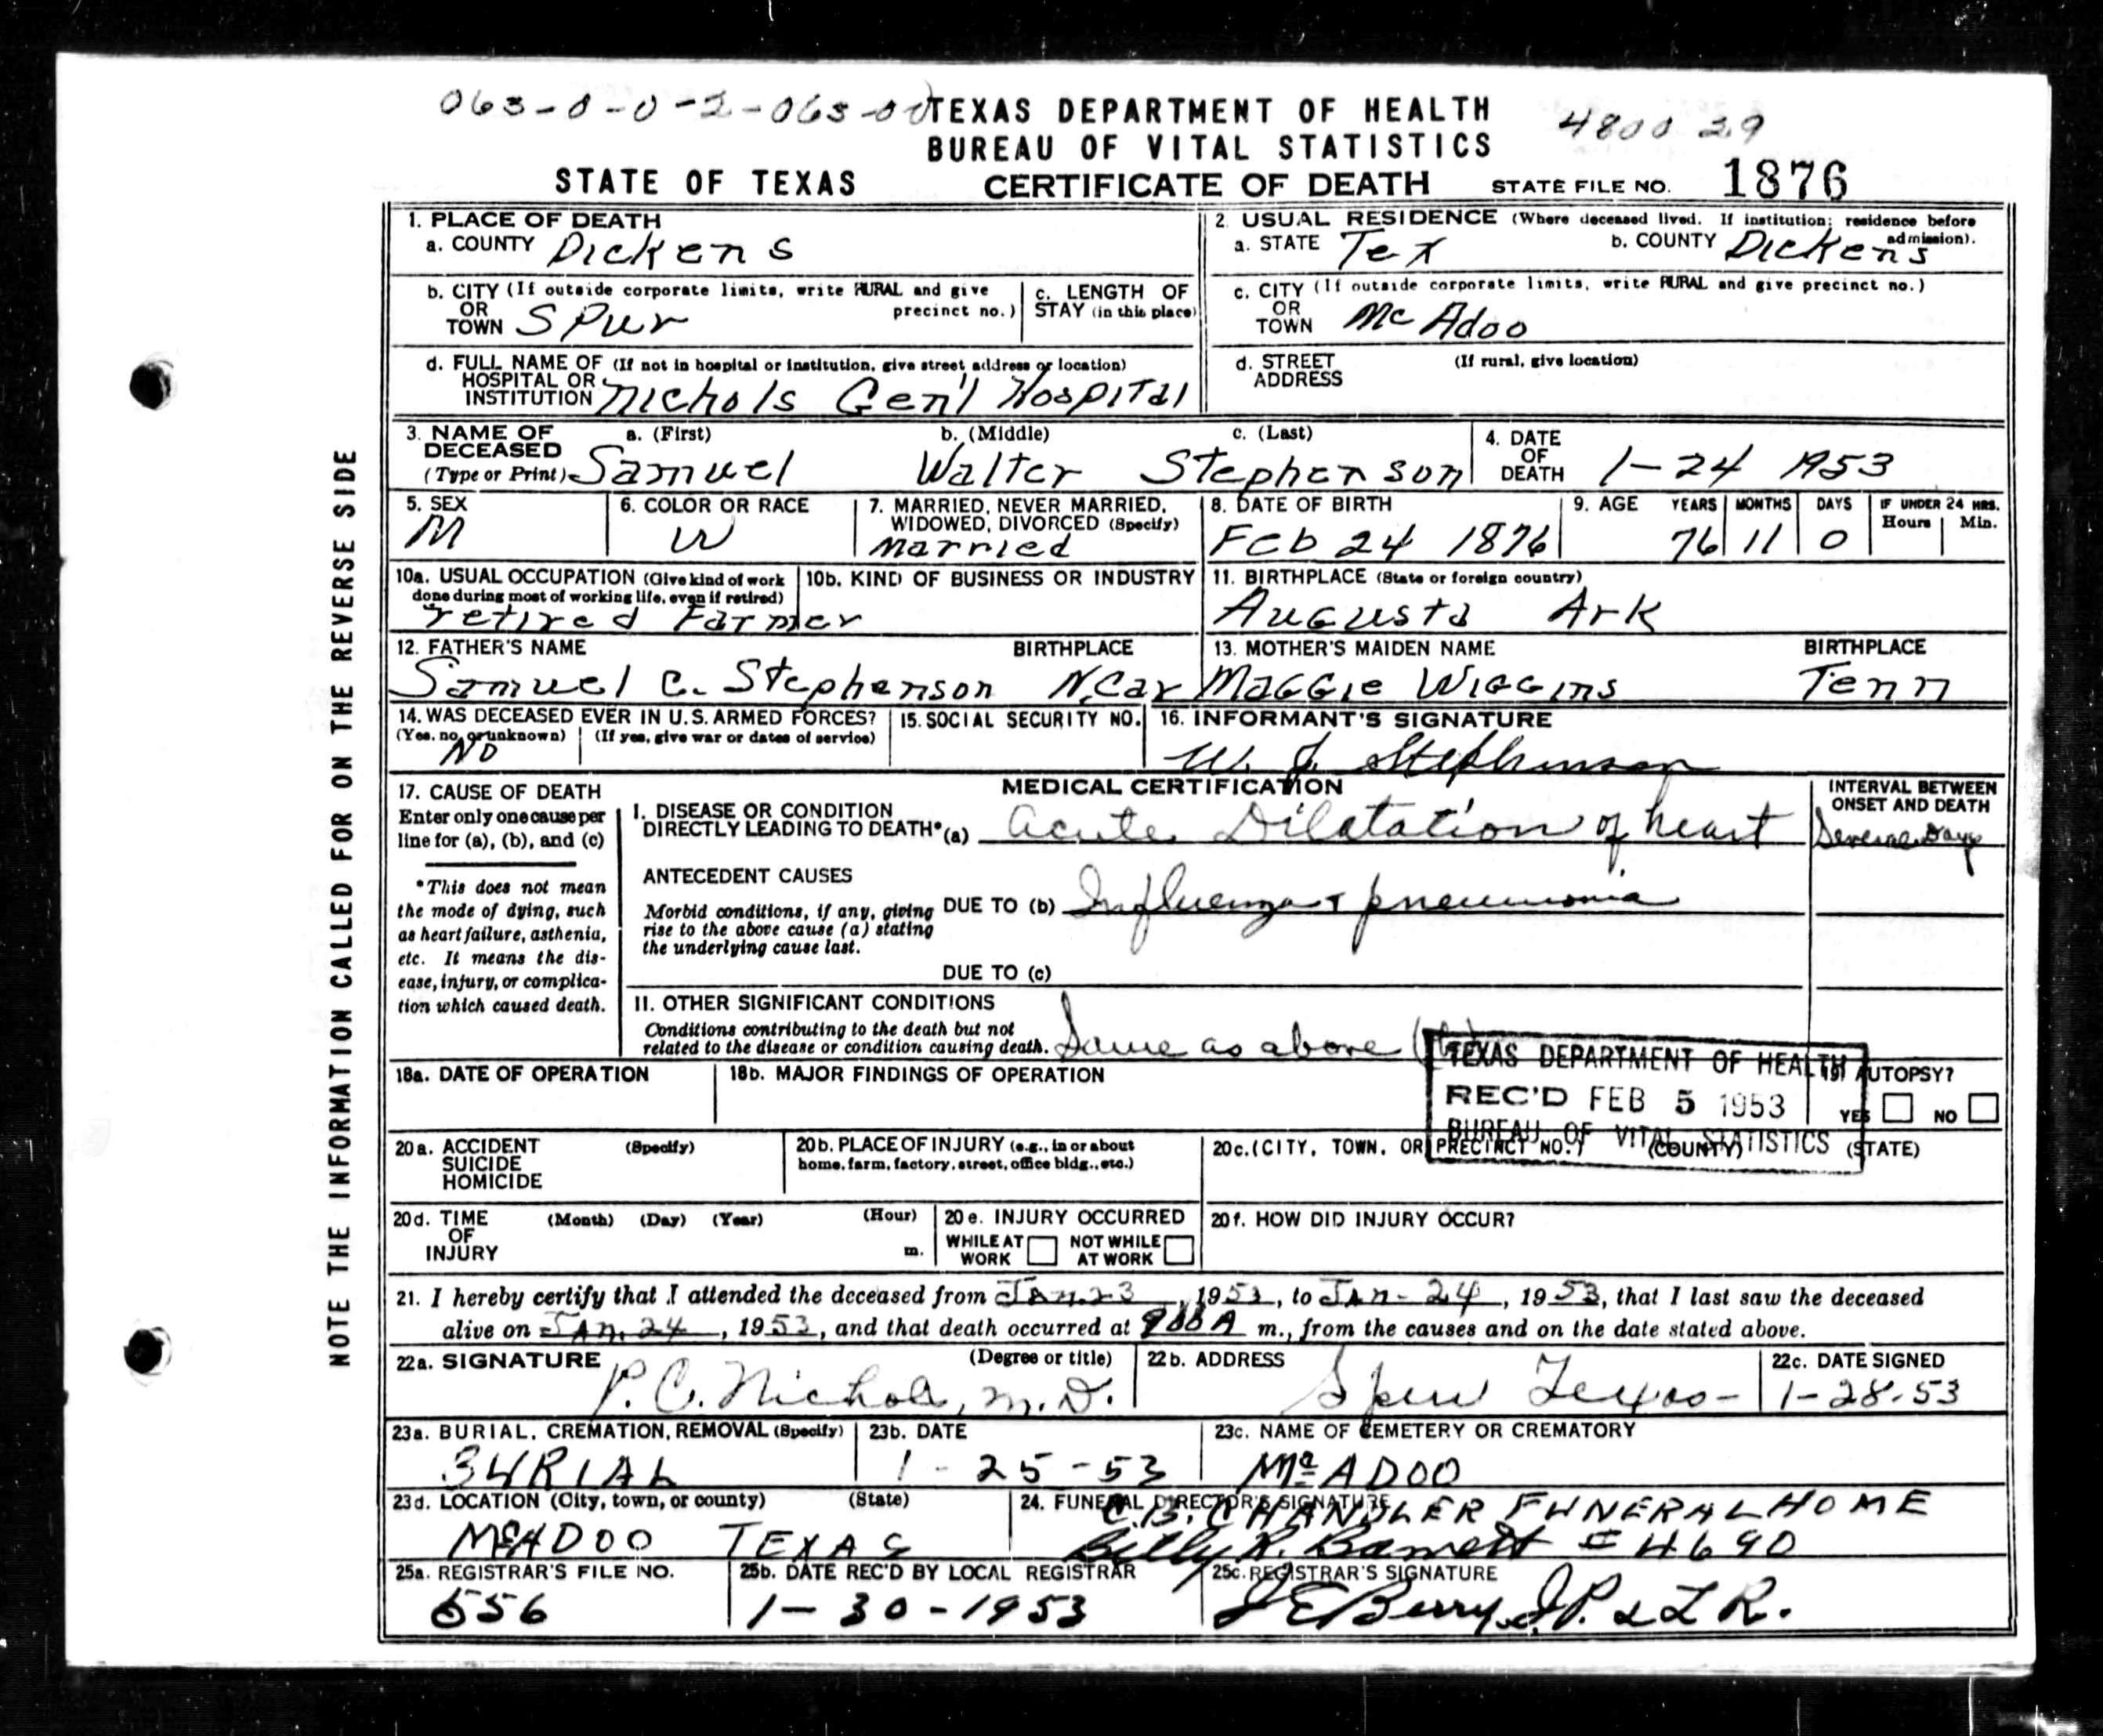 063-0-0-2-063-00 TEXAS DEPARTMENT OF HEALTH 4800 29
BUREAU OF VITAL STATISTICS
STATE OF TEXAS CERTIFICATE OF DEATH STATE FILE NO. 1876
NOTE THE INFORMATION CALLED FOR ON THE REVERSE SIDE
1. PLACE OF DEATH
a. COUNTY Dickens
2. USUAL RESIDENCE (Where deceased lived. If institution: residence before admission).
a. STATE Tex b. COUNTY Dickens
b. CITY (If outside corporate limits, write RURAL and give precinct no.)
OR
TOWN Spur
c. LENGTH OF
STAY (in this place)
c. CITY (If outside corporate limits, write RURAL and give precinct no.)
OR
TOWN McAdoo
d. FULL NAME OF (If not in hospital or institution, give street address or location)
HOSPITAL OR
INSTITUTION Nichols Gen'l Hospital
d. STREET (If rural, give location)
ADDRESS
3. NAME OF a. (First) b. (Middle) c. (Last)
DECEASED
(Type or Print) Samuel Walter Stephenson
4. DATE
OF
DEATH 1-24 1953
5. SEX
M
6. COLOR OR RACE
W
7. MARRIED, NEVER MARRIED,
WIDOWED, DIVORCED (Specify)
Married
8. DATE OF BIRTH
Feb 24 1876
9. AGE YEARS MONTHS DAYS IF UNDER 24 HRS.
Hours Min.
76 11 0
10a. USUAL OCCUPATION (Give kind of work
done during most of working life, even if retired)
retired Farmer
10b. KIND OF BUSINESS OR INDUSTRY
11. BIRTHPLACE (State or foreign country)
Augusta Ark
12. FATHER'S NAME BIRTHPLACE
Samuel C. Stephenson N.Car
13. MOTHER'S MAIDEN NAME BIRTHPLACE
Maggie Wiggins Tenn
14. WAS DECEASED EVER IN U.S. ARMED FORCES?
(Yes, no, or unknown) (If yes, give war or dates of service)
No
15. SOCIAL SECURITY NO.
16. INFORMANT'S SIGNATURE
W. J. Stephenson
17. CAUSE OF DEATH
Enter only one cause per
line for (a), (b), and (c)
*This does not mean
the mode of dying, such
as heart failure, asthenia,
etc. It means the dis-
ease, injury, or complica-
tion which caused death.
MEDICAL CERTIFICATION
INTERVAL BETWEEN
ONSET AND DEATH
I. DISEASE OR CONDITION
DIRECTLY LEADING TO DEATH* (a) Acute Dilatation of heart Several Days
ANTECEDENT CAUSES
Morbid conditions, if any, giving
rise to the above cause (a) stating
the underlying cause last.
DUE TO (b) Influenza + pneumonia
DUE TO (c)
II. OTHER SIGNIFICANT CONDITIONS
Conditions contributing to the death but not
related to the disease or condition causing death. Same as above
TEXAS DEPARTMENT OF HEALTH
REC'D FEB 5 1953
BUREAU OF VITAL STATISTICS
18a. DATE OF OPERATION
18b. MAJOR FINDINGS OF OPERATION
19. AUTOPSY?
YES NO
20a. ACCIDENT (Specify)
SUICIDE
HOMICIDE
20b. PLACE OF INJURY (e.g., in or about
home, farm, factory, street, office bldg., etc.)
20c. (CITY, TOWN, OR PRECINCT NO.) (COUNTY) (STATE)
20d. TIME (Month) (Day) (Year) (Hour)
OF
INJURY m.
20e. INJURY OCCURRED
WHILE AT WORK NOT WHILE AT WORK
20f. HOW DID INJURY OCCUR?
21. I hereby certify that I attended the deceased from Jan. 23, 1953, to Jan-24, 1953, that I last saw the deceased
alive on Jan. 24, 1953, and that death occurred at 900A m., from the causes and on the date stated above.
22a. SIGNATURE (Degree or title)
P. C. Nichols, M.D.
22b. ADDRESS
Spur Texas-
22c. DATE SIGNED
1-28-53
23a. BURIAL, CREMATION, REMOVAL (Specify)
BURIAL
23b. DATE
1-25-53
23c. NAME OF CEMETERY OR CREMATORY
McADOO
23d. LOCATION (City, town, or county) (State)
McADOO TEXAS
24. FUNERAL DIRECTOR'S SIGNATURE
C.B. CHANDLER FUNERAL HOME
Billy R. Barnett #4690
25a. REGISTRAR'S FILE NO.
556
25b. DATE REC'D BY LOCAL REGISTRAR
1-30-1953
25c. REGISTRAR'S SIGNATURE
J E Berry J.P. & L R.